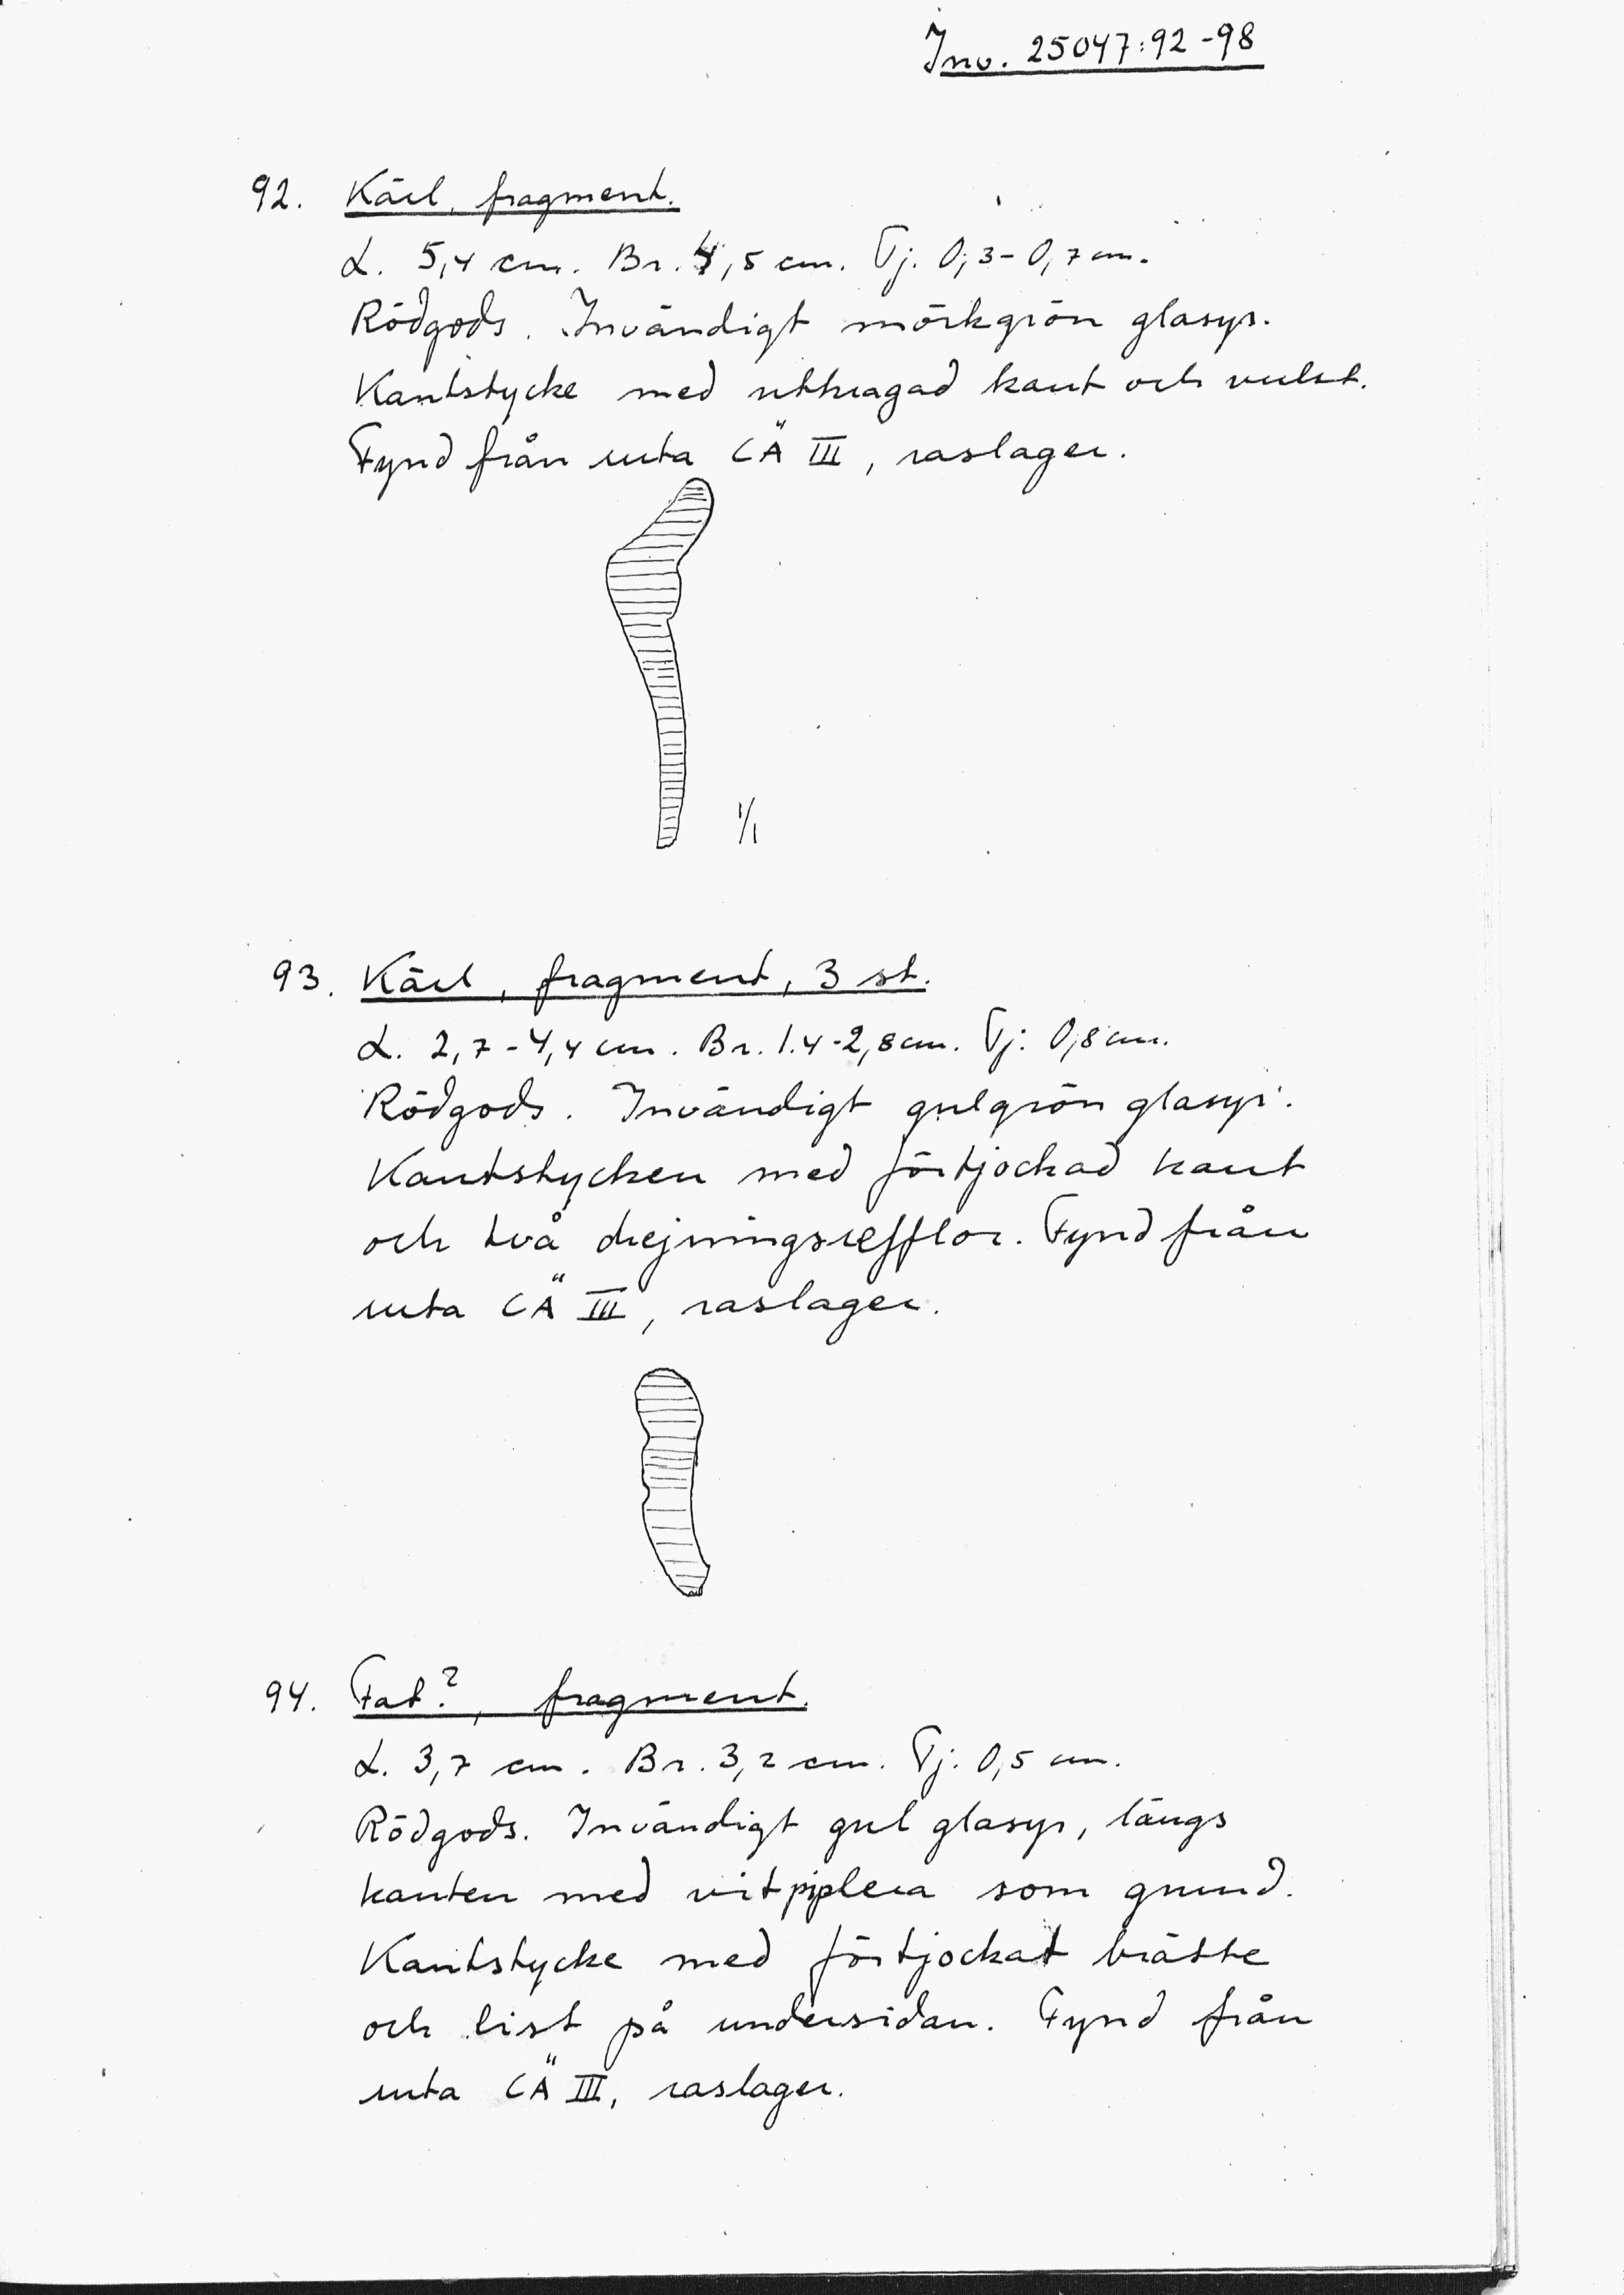 Inv. 25047:92-98
92. Kärl, fragment.
L. 5,4 cm. Br. 4,5 cm. Tj. 0,3-0,7 cm.
Rödgods. Invändigt mörkgrön glasyr.
Kantstycke med utkragad kant och vulst.
Fynd från ruta CÄ III, raslager.
1/1
93. Kärl, fragment, 3 st.
L. 2,7-4,4 cm. Br. 1.4-2,8 cm. Tj. 0,8 cm.
Rödgods. Invändigt gulgrön glasyr.
Kantstycken med förtjockad kant
och två drejningsrefflor. Fynd från
ruta CÄ III, raslager.
94. Fat?, fragment.
L. 3,7 cm. Br. 3,2 cm. Tj. 0,5 cm.
Rödgods. Invändigt gul glasyr, längs
kanten med vit piplera som grund.
Kantstycke med förtjockat brätte
och list på undersidan. Fynd från
ruta CÄ III, raslager.